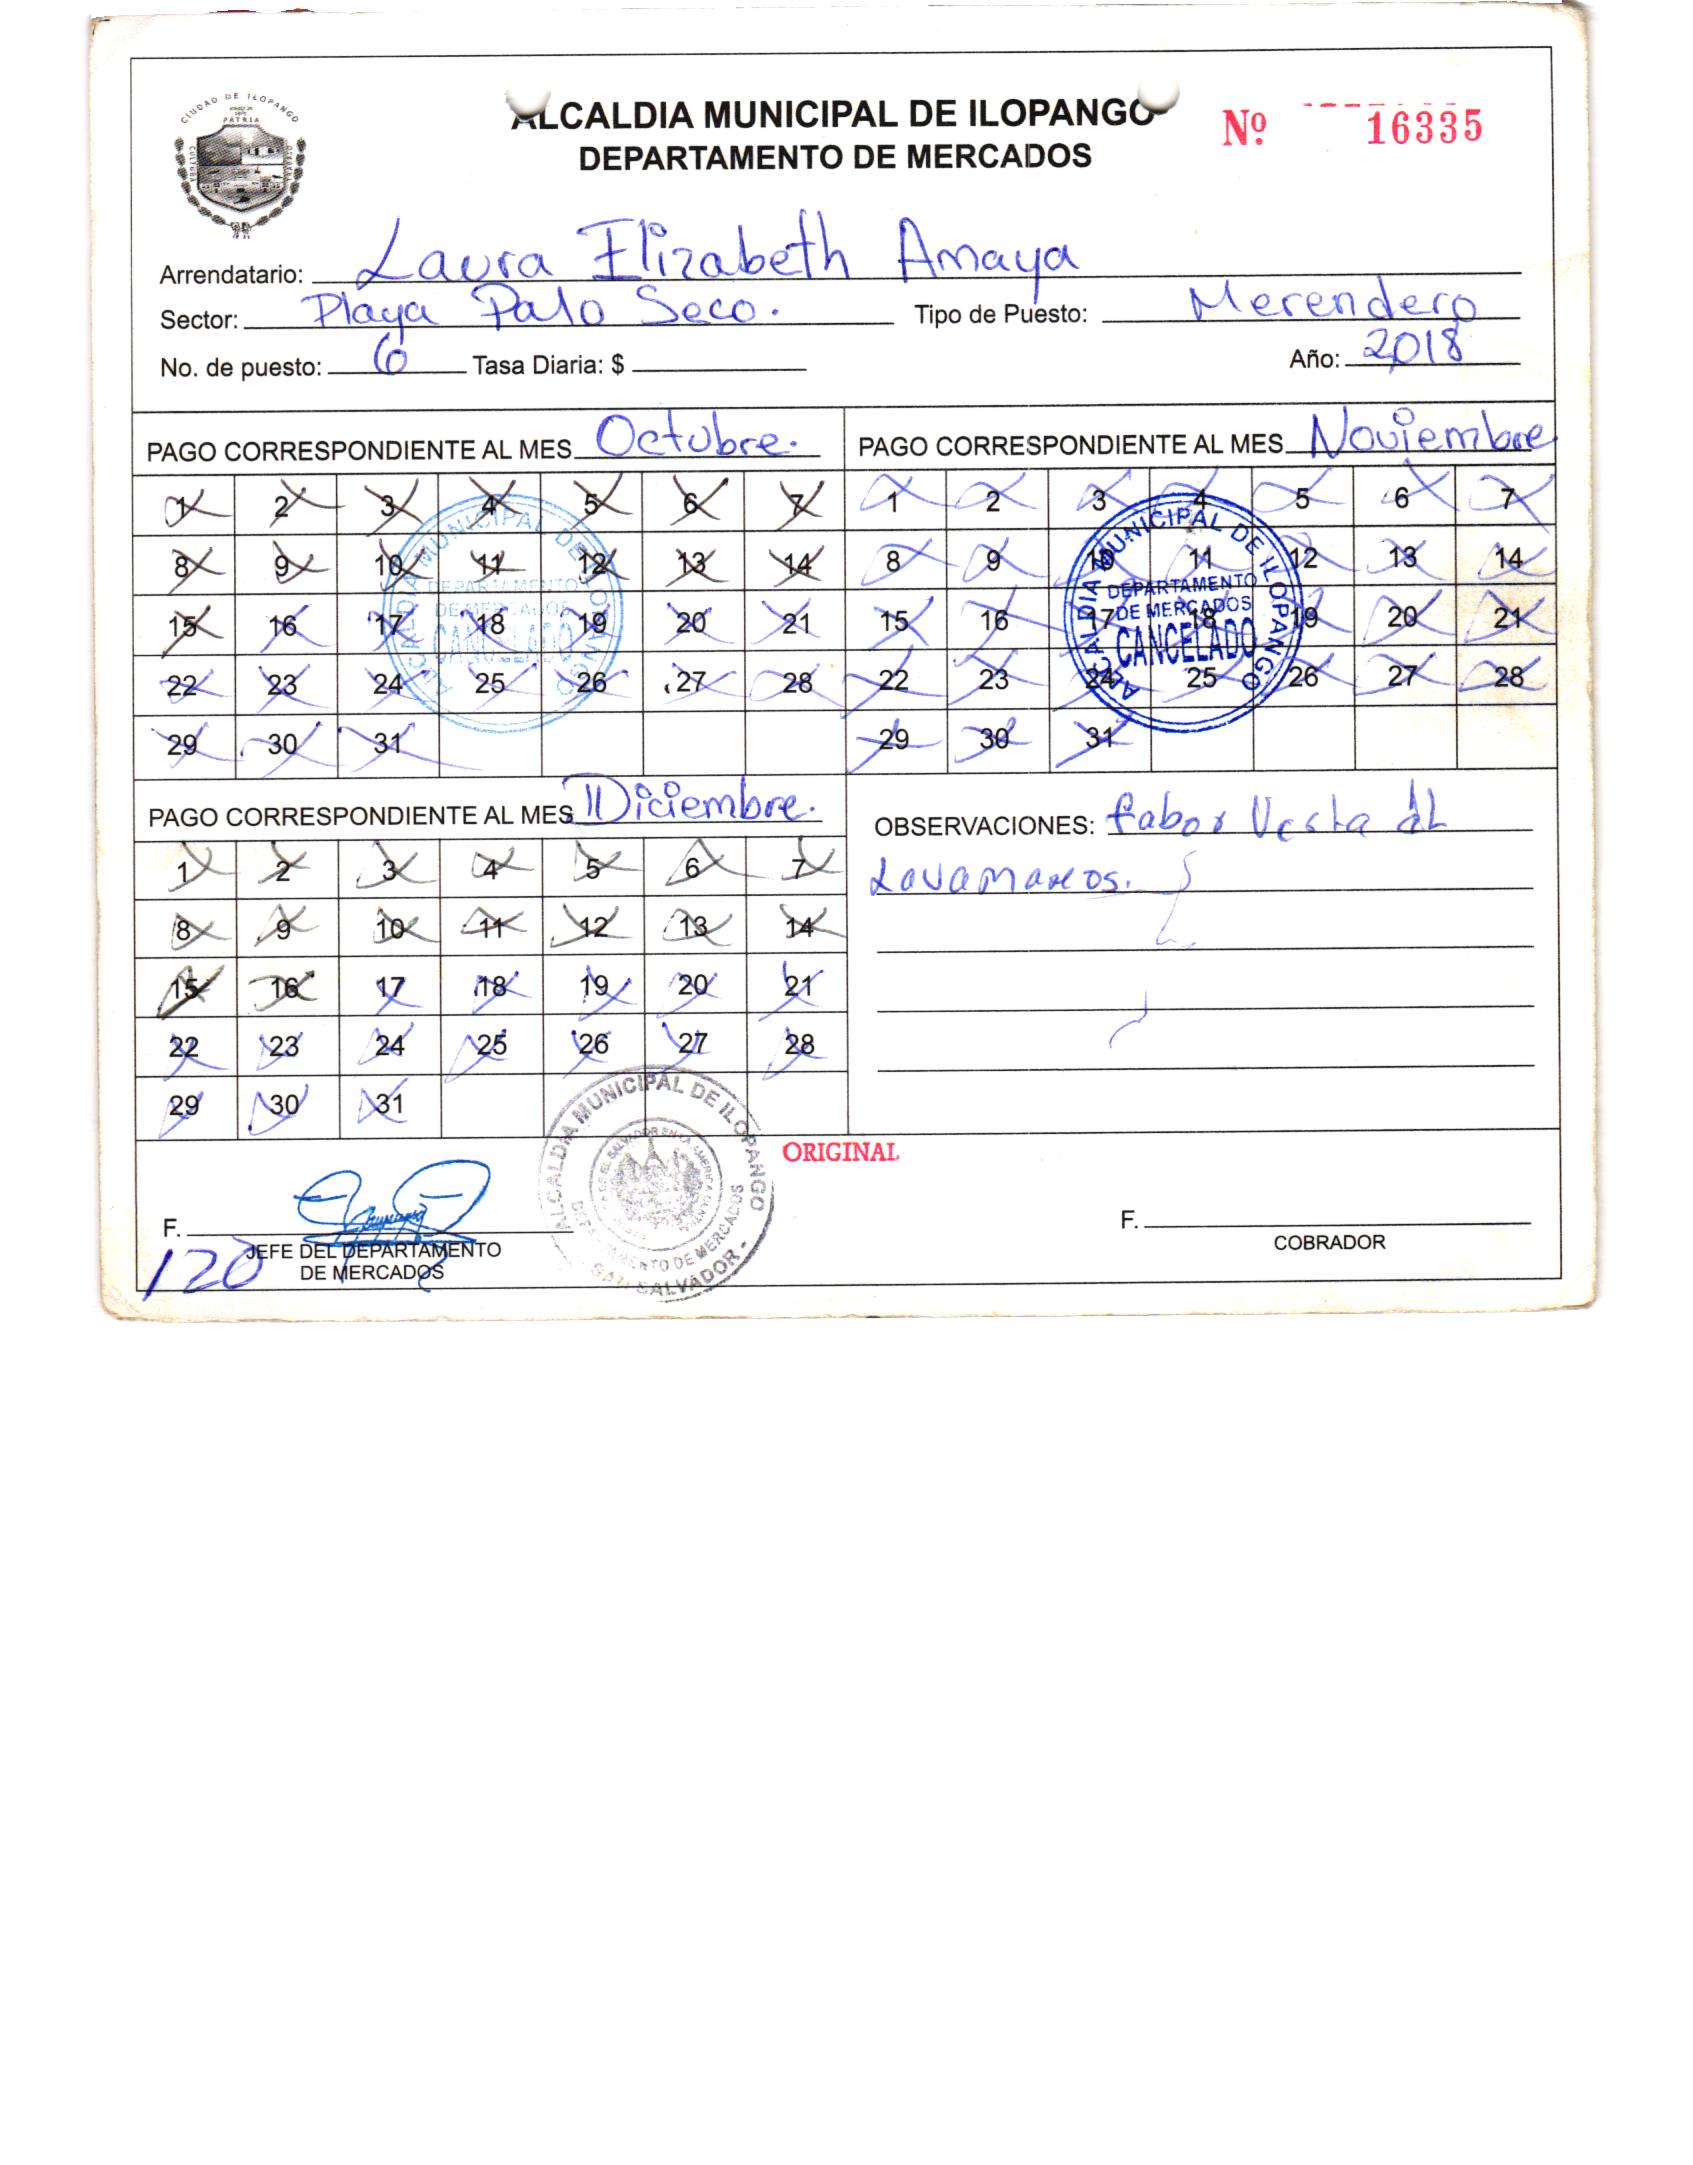 CIUDAD DE ILOPANGO
PATRIA
CULTURA
ALCALDIA MUNICIPAL DE ILOPANGO
DEPARTAMENTO DE MERCADOS
Nº 16335
Arrendatario: Laura Elizabeth Amaya
Sector: Playa Palo Seco. Tipo de Puesto: Merendero
No. de puesto: 6 Tasa Diaria: $ Año: 2018
PAGO CORRESPONDIENTE AL MES Octubre.
1 2 3 4 5 6 7
8 9 10 11 12 13 14
15 16 17 18 19 20 21
22 23 24 25 26 27 28
29 30 31
ALCALDIA MUNICIPAL DE ILOPANGO
DEPARTAMENTO
DE MERCADOS
CANCELADO
PAGO CORRESPONDIENTE AL MES Noviembre
1 2 3 4 5 6 7
8 9 10 11 12 13 14
15 16 17 18 19 20 21
22 23 24 25 26 27 28
29 30 31
ALCALDIA MUNICIPAL DE ILOPANGO
DEPARTAMENTO
DE MERCADOS
CANCELADO
PAGO CORRESPONDIENTE AL MES Diciembre.
1 2 3 4 5 6 7
8 9 10 11 12 13 14
15 16 17 18 19 20 21
22 23 24 25 26 27 28
29 30 31
OBSERVACIONES: fabor
Lavamanos.
ALCALDIA MUNICIPAL DE ILOPANGO
DEPARTAMENTO DE MERCADOS
SAN SALVADOR
ORIGINAL
F.
JEFE DEL DEPARTAMENTO
DE MERCADOS
120
F.
COBRADOR